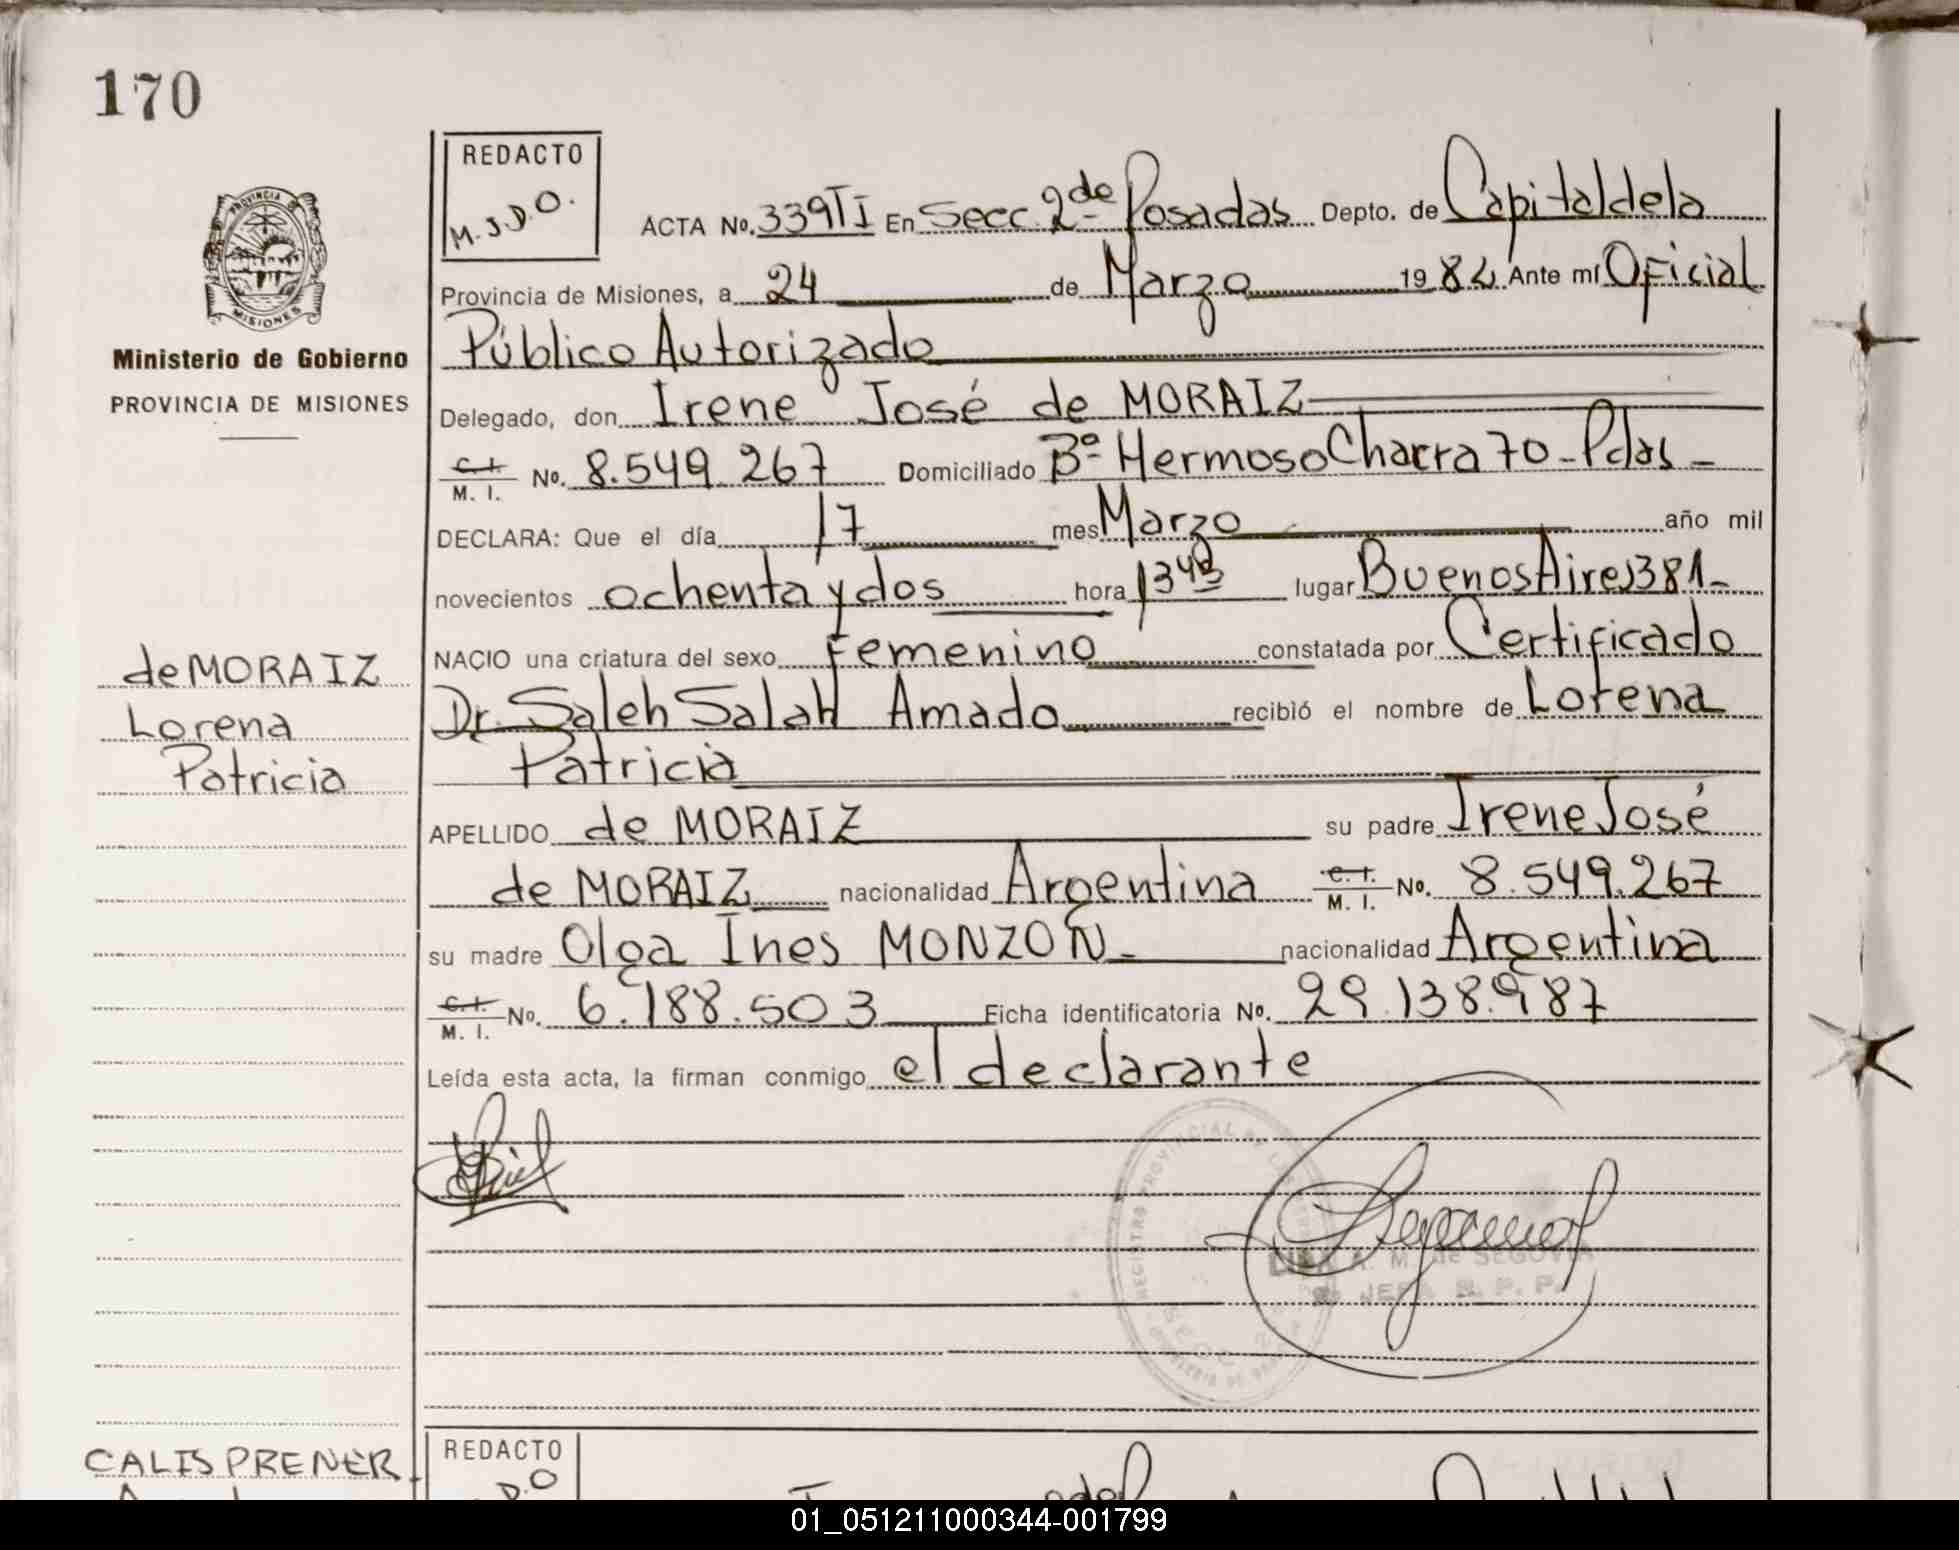 170
REDACTO
M.J.D.O.
PROVINCIA DE
MISIONES
Ministerio de Gobierno
PROVINCIA DE MISIONES
ACTA No. 339TI En Secc. 2da Posadas Depto. de Capital de la
Provincia de Misiones, a 24 de Marzo 1982 Ante mí Oficial
Público Autorizado
Delegado, don Irene José de MORAIZ
C.I. M. I. No. 8.549.267 Domiciliado Bº Hermoso Chacra 70 - Pdas -
DECLARA: Que el día 17 mes Marzo año mil
novecientos ochenta y dos hora 13 45 lugar Buenos Aires 381 -
NACIO una criatura del sexo Femenino constatada por Certificado
Dr. Saleh Salah Amado recibió el nombre de Lorena
Patricia
APELLIDO de MORAIZ su padre Irene José
de MORAIZ nacionalidad Argentina C.I. M. I. No. 8.549.267
su madre Olga Ines MONZON - nacionalidad Argentina
C.I. M. I. No. 6.188.503 Ficha identificatoria No. 29.138.987
Leída esta acta, la firman conmigo el declarante
de MORAIZ
Lorena
Patricia
REGISTRO PROVINCIAL DE LAS
A. M. de SEGOVIA
JEFA R. P. P.
CALISPRENER
REDACTO
D.O
01_051211000344-001799